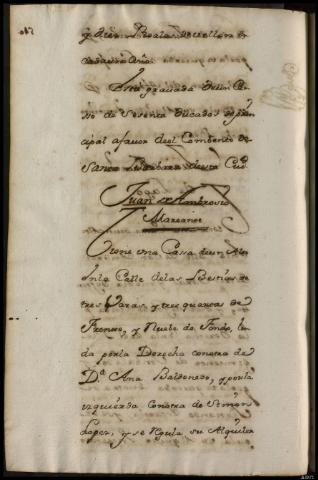 y diez Reales de vellon en
cada un Año
Esta gravada de un Censo
de Sesenta Ducados de principal
a favor del Combento de
Santa de esta Ciud.
Juan Ambrosio
Mareanos
Tiene una Casa de un Alto
En la Calle de las Bestias de
tres Varas, y tres quartas de
Frente, y Nuebe de fondo, linda
por la Derecha con otra de
D.ª Ana Baldonedo, y por la
izquierda con otra de Simon
Lopez, y se regula su Alquiler